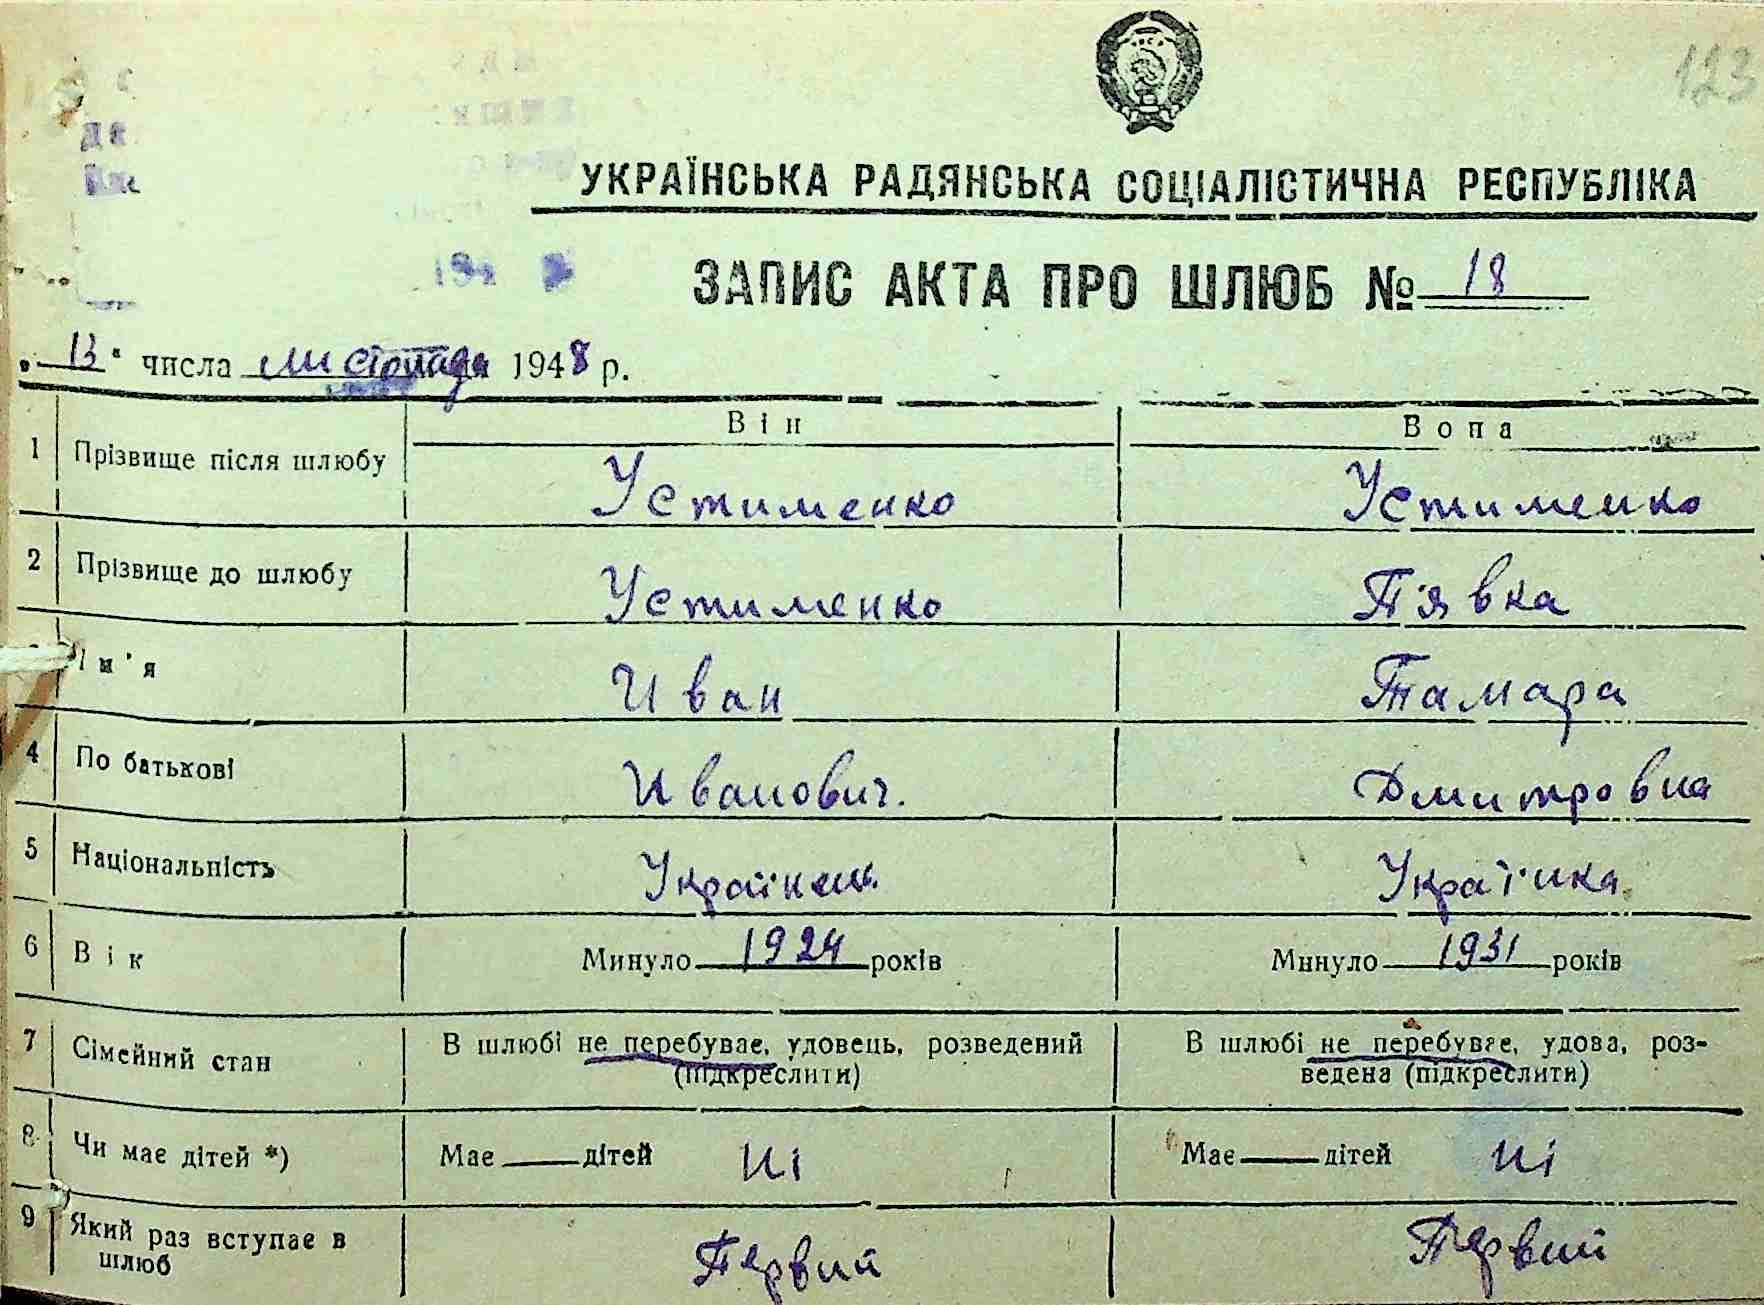 123
УКРАЇНСЬКА РАДЯНСЬКА СОЦІАЛІСТИЧНА РЕСПУБЛІКА
ЗАПИС АКТА ПРО ШЛЮБ № 18
„13“ числа листопада 1948 р.
Він Вона
1 Прізвище після шлюбу Устименко Устименко
2 Прізвище до шлюбу Устименко П'явка
Ім'я Иван Тамара
4 По батькові Иванович. Дмитровна
5 Національність Українець Українка
6 Вік Минуло 1924 років Минуло 1931 років
7 Сімейний стан В шлюбі не перебуває, удовець, розведений (підкреслити) В шлюбі не перебуває, удова, роз-
ведена (підкреслити)
8 Чи має дітей *) Має — дітей ні Має — дітей ні
9 Який раз вступає в шлюб Первий Первий